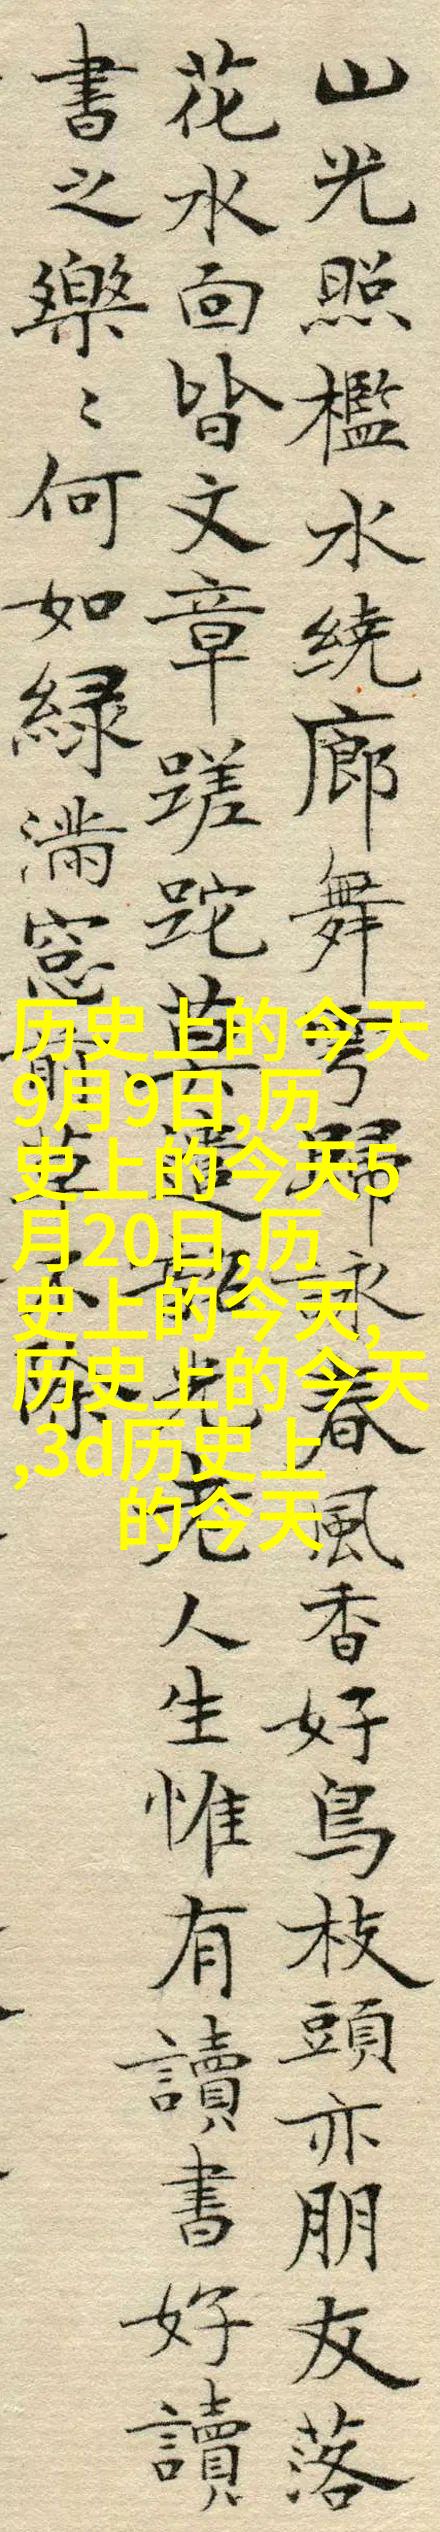 山光照檻水绕廊舞雩歸詠春風香好鳥枝頭亦朋友落
花水面皆文章蹉跎莫遣韶光老人生惟有讀書好讀
書之樂〻何如緑滿窓前草不除
历史上的今天
9月9日,历
史上的今天5
月20日,历
史上的今天,
历史上的今天
,3d历史上
的今天